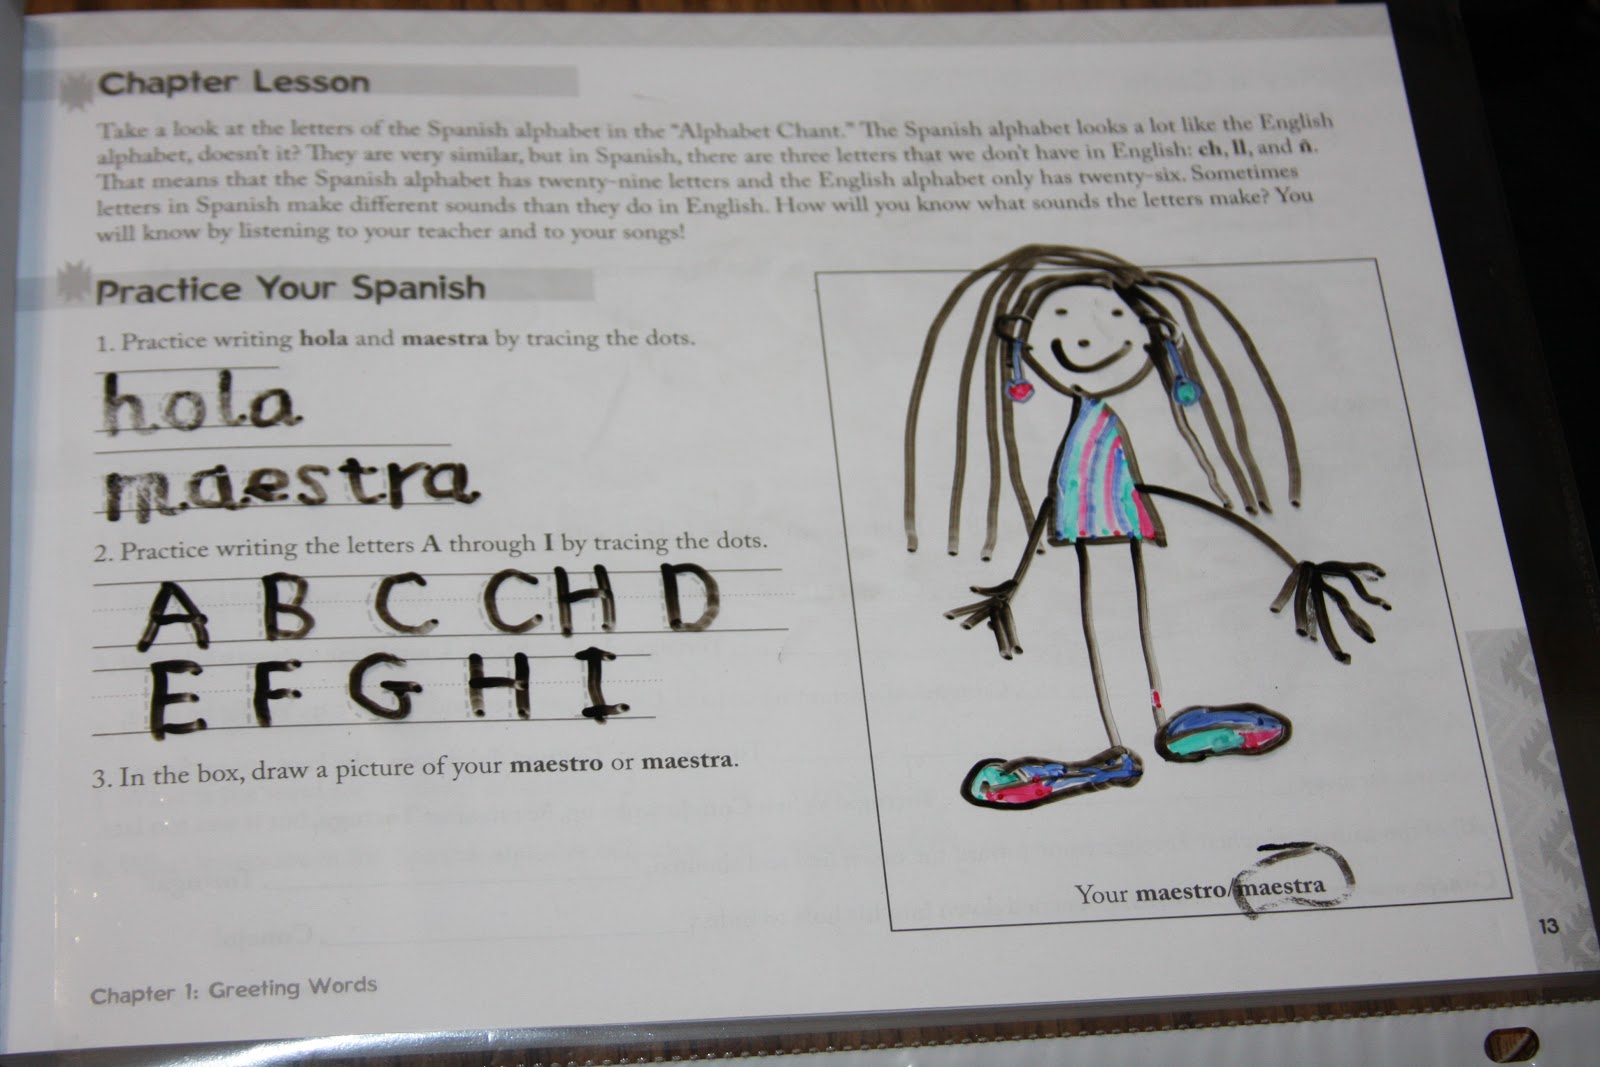 Chapter Lesson
Take a look at the letters of the Spanish alphabet in the "Alphabet Chant." The Spanish alphabet looks a lot like the English
alphabet, doesn't it? They are very similar, but in Spanish, there are three letters that we don't have in English: ch, ll, and ñ.
That means that the Spanish alphabet has twenty-nine letters and the English alphabet only has twenty-six. Sometimes
letters in Spanish make different sounds than they do in English. How will you know what sounds the letters make? You
will know by listening to your teacher and to your songs!
Practice Your Spanish
1. Practice writing hola and maestra by tracing the dots.
hola
maestra
2. Practice writing the letters A through I by tracing the dots.
A B C CH D
E F G H I
3. In the box, draw a picture of your maestro or maestra.
Your maestro/maestra
13
Chapter 1: Greeting Words